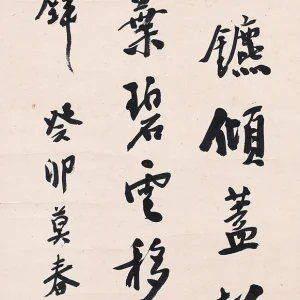 鑣傾蓋
葉碧雲移
癸卯莫春